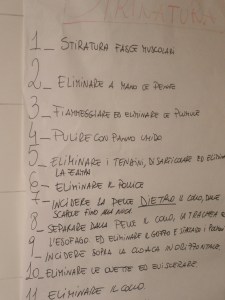 1_ STIRATURA FASCE MUSCOLARI
2_ ELIMINARE A MANO LE PENNE
3_ FIAMMEGGIARE ED ELIMINARE LE PIUMINE
4_ PULIRE CON PANNO UMIDO
5_ ELIMINARE I TENDINI, DISARTICOLARE ED ELIMIN
LA ZAMPA
6_ ELIMINARE IL POLLICE
7_ INCIDERE LA PELLE DIETRO IL COLLO, DALLE
SCAPOLE FINO ALLA NUCA
8_ SEPARARE DALLA PELLE IL COLLO, LA TRACHEA E
L'ESOFAGO ED ELIMINARE IL GOZZO E I POLMONI
9_ INCIDERE SOPRA LA CLOACA IN ORIZZONTALE
10_ ELIMINARE LE OVETTE ED EVISCERARE
11_ ELIMINARE IL COLLO.